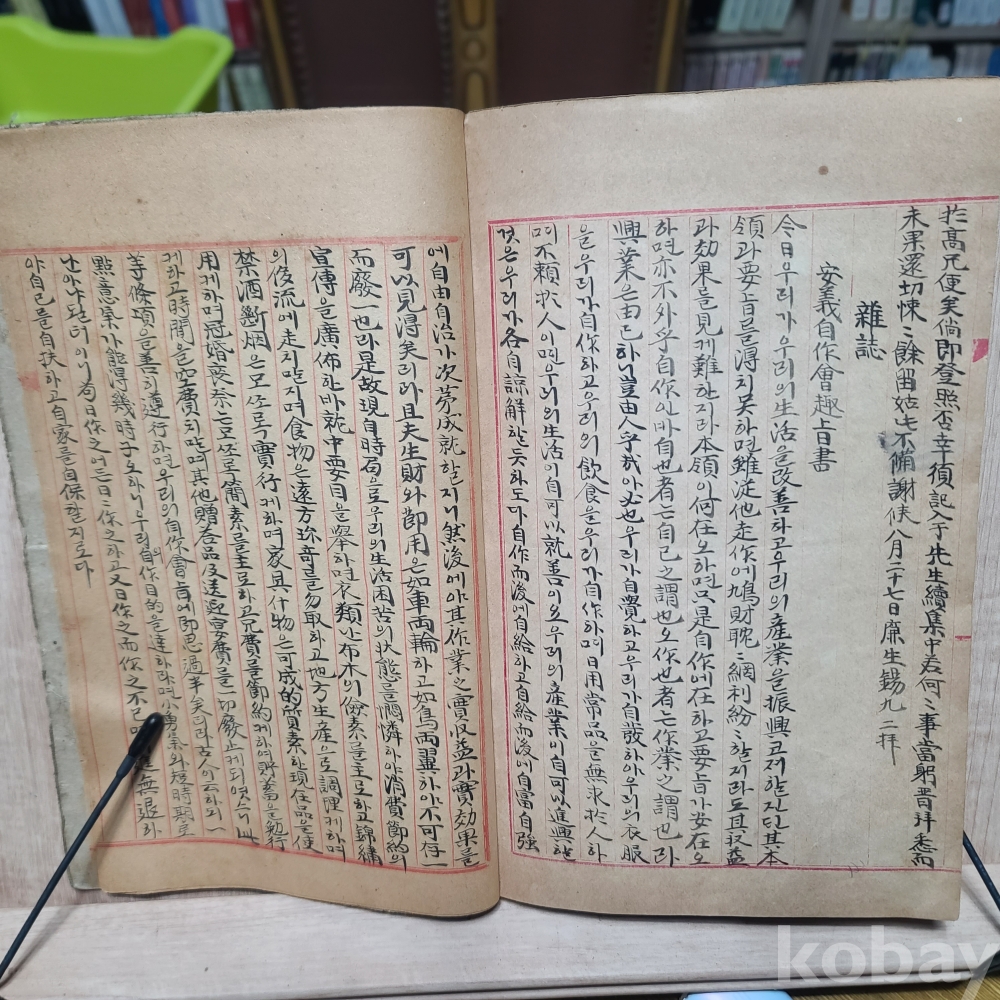 於高兄便矣倘即登照否幸須記入于先生續集中若何〻事當躬晋拜悉而
未果還切悚〻餘留姑此不備謝候八月二十七日廉生錫九二拜
雜誌
安義自作會趣旨書
今日우리가우리의生活을改善하고우리의産業을振興코저할진단其本
領과要旨를得치못하면雖從他走作에鳩財耽〻網利紛〻할지라도其収益
과効果를見게難한지라本領이何在오하면只是自作에在하고要旨가安在오
하면亦不外乎自作이바自也者는自己之謂也오作也者는作業之謂也라
興業은由己하니豈由人乎哉아必也우리가自覺하고우리가自發하야우리의衣服
을우리가自作하고우리의飮食을우리가自作하며日用常品을無求於人하
며不賴於人이면우리의生活이自可以就善이오우리의産業이自可以進興할
것은우리가各自諒解할듯하도다自作而後에自給하고自給而後에自富自強
에自由自治가次第成就할지니然後에야其作業之實収益과實効果를
可以見得矣리라且夫生財와節用은如車両輪하고如鳥両翼하야不可存一
而廢一也라是故現自時局으로우리의生活困苦의状態를憫憐하야消費節約의
宣傳을廣佈한바就中要目을擧하면衣類난布木의儉素를主로하고錦繡
의俊流에走치말지며食物은遠方珍奇를勿取하고地方生産으로調理케하며
禁酒斷烟은모쪼록實行케하며家具什物은可成的質素한現在品을使
用케하며冠婚喪祭는모쪼록簡素를主로하고冗費를節約케하여貯蓄을勉行
케하고時間을空費치말며其他贈答品及送迎宴費를一切廢止케되엿스니此
等條項을善히遵行하면우리의自作會旨에即思過半矣리라古人이云하되一
點意氣가能得幾時子오하니우리自作目的을達하랴면小勇氣와短時期로
난아니될터이니苟日作之어든日〻作之하고又日作之而作之不已
야自己를自扶하고自家를自保할지로다
kobay